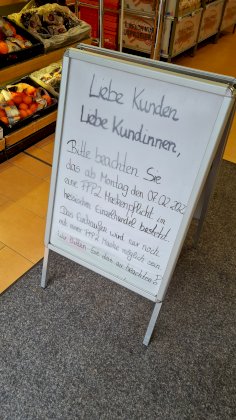 Liebe Kunden
Liebe Kundinnen,
Bitte beachten Sie
das ab Montag den 07.02.202
eine FFP2 Maskenpflicht im
hessischen Einzelhandel besteht.
Das Einkaufen wird nur noch
mit einer FFP2 Maske möglich sein.
Wir bitten Sie dies zu beachten!